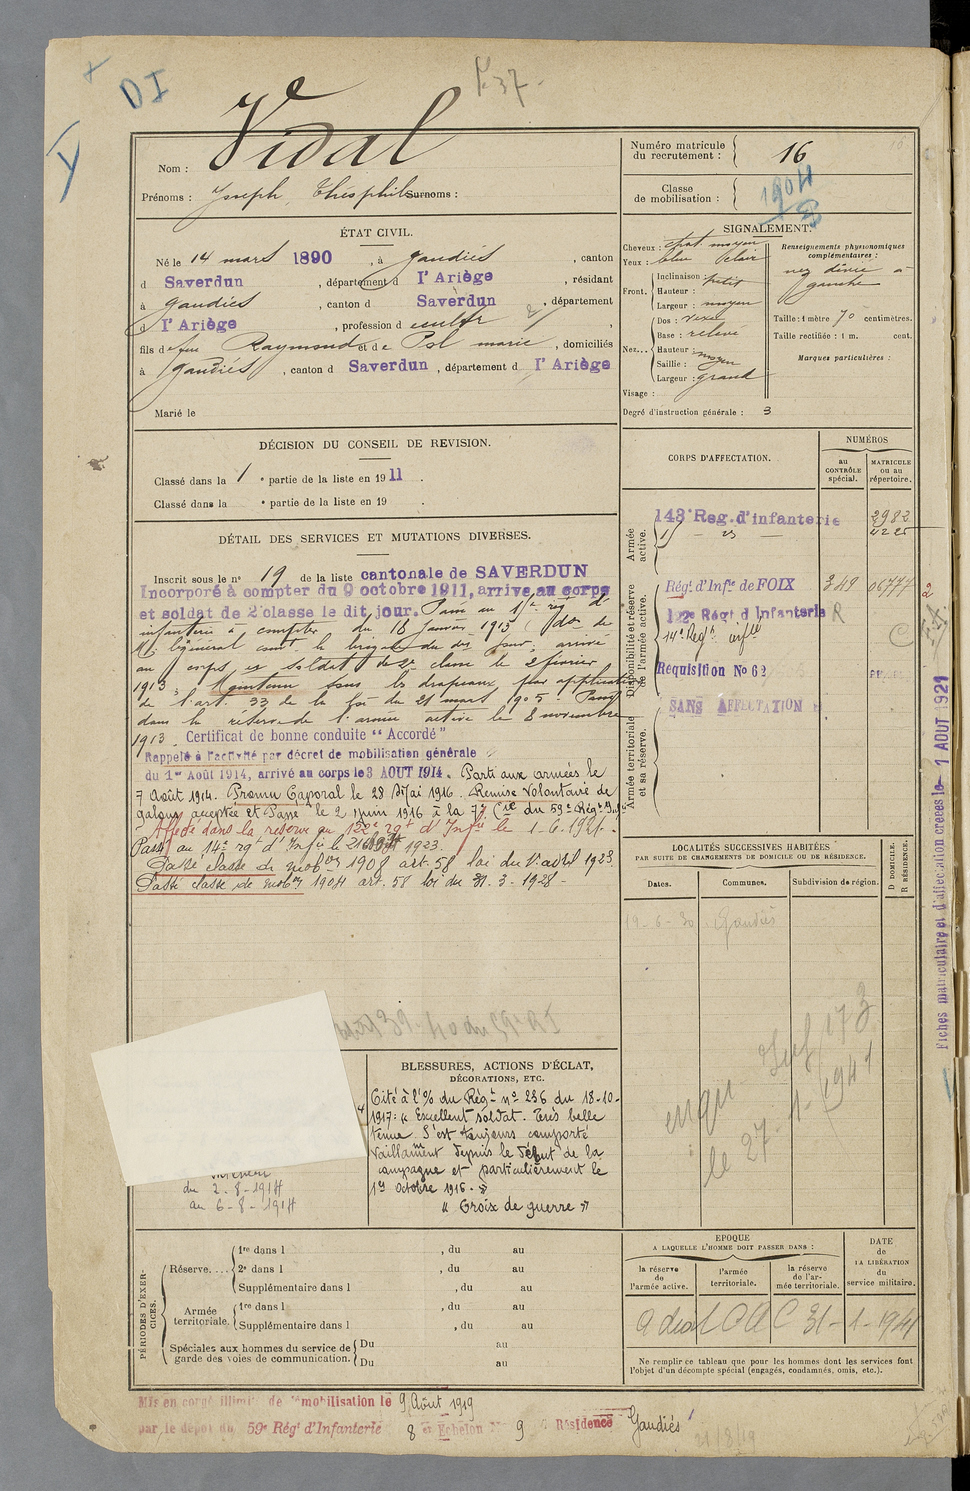 DI
Nom : Vidal
Prénoms : Joseph, Théophile Surnoms :
Numéro matricule du recrutement : 16
Classe de mobilisation : 1904
ÉTAT CIVIL.
Né le 14 mars 1890, à Gaudiés, canton
d Saverdun, département d l'Ariège, résidant
à Gaudiés, canton d Saverdun, département
d l'Ariège, profession d cult
fils de feu Raymond et de Pol marie, domiciliés
à Gaudiés, canton d Saverdun, département d l'Ariège
Marié le
SIGNALEMENT.
Cheveux : chat. moyen
Yeux : bleu clair
Front. Inclinaison : petit
Hauteur :
Largeur : moyen
Nez... Dos : vexe
Base : relevé
Hauteur : moyen
Saillie : moyen
Largeur : grand
Visage :
Degré d'instruction générale : 3
Renseignements physionomiques complémentaires :
nez dévié à gauche
Taille : 1 mètre 70 centimètres.
Taille rectifiée : 1 m. cent.
Marques particulières :
DÉCISION DU CONSEIL DE REVISION.
Classé dans la 1 e partie de la liste en 1911.
Classé dans la e partie de la liste en 19 .
DÉTAIL DES SERVICES ET MUTATIONS DIVERSES.
Inscrit sous le n° 19 de la liste cantonale de SAVERDUN
Incorporé à compter du 9 octobre 1911, arrive au corps
et soldat de 2e classe le dit jour. Passé au rég. de
infanterie à compter du 18 janvier 1913 (don de
Mr le général comt la brigade du dit jour, arrivé
au corps et soldat de 2e classe le 2 février
1913. Maintenu sous les drapeaux par application
de l'art. 33 de la loi du 21 mars 1905. Passé
dans la réserve de l'armée active le 8 novembre
1913. Certificat de bonne conduite "Accordé"
Rappelé à l'activité par décret de mobilisation générale
du 1er Août 1914, arrivé au corps le 3 AOUT 1914. Parti aux armées le
7 Août 1914. Promu Caporal le 28 Mai 1916. Remise Volontaire de
galons acceptée et Passé le 2 juin 1916 à la 7e Cie du 59e Régt d'Infie
Affecté dans la réserve au 122e rgt d'Infie le 1-6-1921.
Passé au 14e rgt d'Infie le 1923.
Passé classe de mobon 1908 art. 58 loi du 1 avril 1923.
Passé classe de mobon 1904 art. 58 loi du 31-3-1928-
CORPS D'AFFECTATION.
NUMÉROS
au CONTRÔLE spécial.
MATRICULE ou au répertoire.
Armée active.
143e Reg. d'infanterie 2982
4225
Disponibilité et réserve de l'armée active.
Régt d'Infie de FOIX 349 06777
122e Régt d'Infanterie R
14e Regt d'Infie
Réquisition No 62
SANS AFFECTATION
Armée territoriale et sa réserve.
Fiches matriculaire et d'affectation créées le 1 AOUT 1921
LOCALITÉS SUCCESSIVES HABITÉES
PAR SUITE DE CHANGEMENTS DE DOMICILE OU DE RÉSIDENCE.
Dates. Communes. Subdivision de région.
D DOMICILE. R RÉSIDENCE.
19-6-30 Gaudiés
le 27-1-1941
BLESSURES, ACTIONS D'ÉCLAT,
DÉCORATIONS, ETC.
Cité à l'% du Régt n° 236 du 18-10-
1917: « Excellent soldat. Très belle
tenue. S'est toujours comporté
vaillamment depuis le début de la
campagne et particulièrement le
1er Octobre 1916. »
« Croix de guerre »
Intérieur
du 2-8-1914
au 6-8-1914
PÉRIODES D'EXERCICES.
Réserve....
1re dans l , du au
2e dans l , du au
Supplémentaire dans l , du au
Armée territoriale.
1re dans l , du au
Supplémentaire dans l , du au
Spéciales aux hommes du service de garde des voies de communication.
Du au
Du au
EPOQUE
A LAQUELLE L'HOMME DOIT PASSER DANS :
la réserve de l'armée active.
l'armée territoriale.
la réserve de l'armée territoriale.
DATE de LA LIBÉRATION du service militaire.
Ne remplir ce tableau que pour les hommes dont les services font
l'objet d'un décompte spécial (engagés, condamnés, omis, etc.).
Mis en congé illimité de démobilisation le 9 Août 1919
par le dépôt du 59e Régt d'Infanterie 8 e Echelon N° 9 Résidence Gaudiés